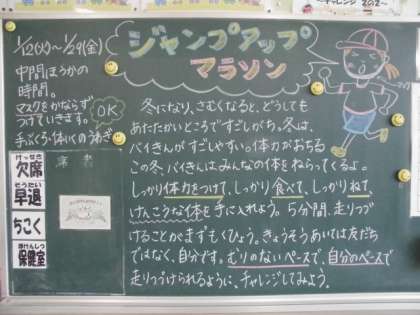 チャレンジ 202
1/12(火)~1/29(金)
ジャンプアップ
マラソン
中間ほうかの
時間。
マスクをかならず
つけていきます。
手ぶくろ・体いくのうわぎ
OK
冬になり、さむくなると、どうしても
あたたかいところですごしがち。冬は、
バイキンがすごしやすい。体力がおちる
この冬、バイきんはみんなの体をねらってくるよ。
しっかり体力をつけて、しっかり食べて、しっかりねて、
けんこうな体を手に入れよう。5分間、走りつづ
けることがまずもくひょう。きょうそうあいては友だち
ではなく、自分です。むりのないペースで、自分のペースで
走りつづけられるように、チャレンジしてみよう。
けっせき
欠席
そうたい
早退
ちこく
ほけんしつ
保健室